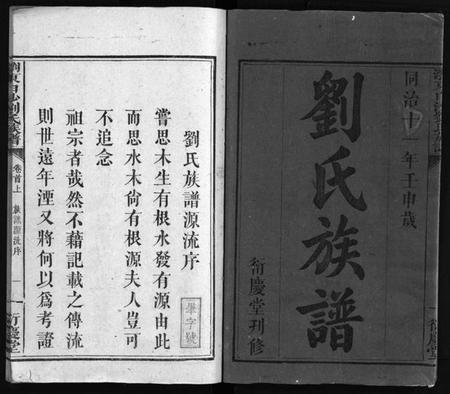 同治十一年壬申歲
劉氏族譜
衍慶堂刊修
劉氏族譜源流序
嘗思木生有根水發有源由此
而思水木尙有根源夫人豈可
不追念
祖宗者哉然不藉記載之傳流
則世遠年湮又將何以爲考證
卷首上
源流序
一
衍慶堂
衍慶堂